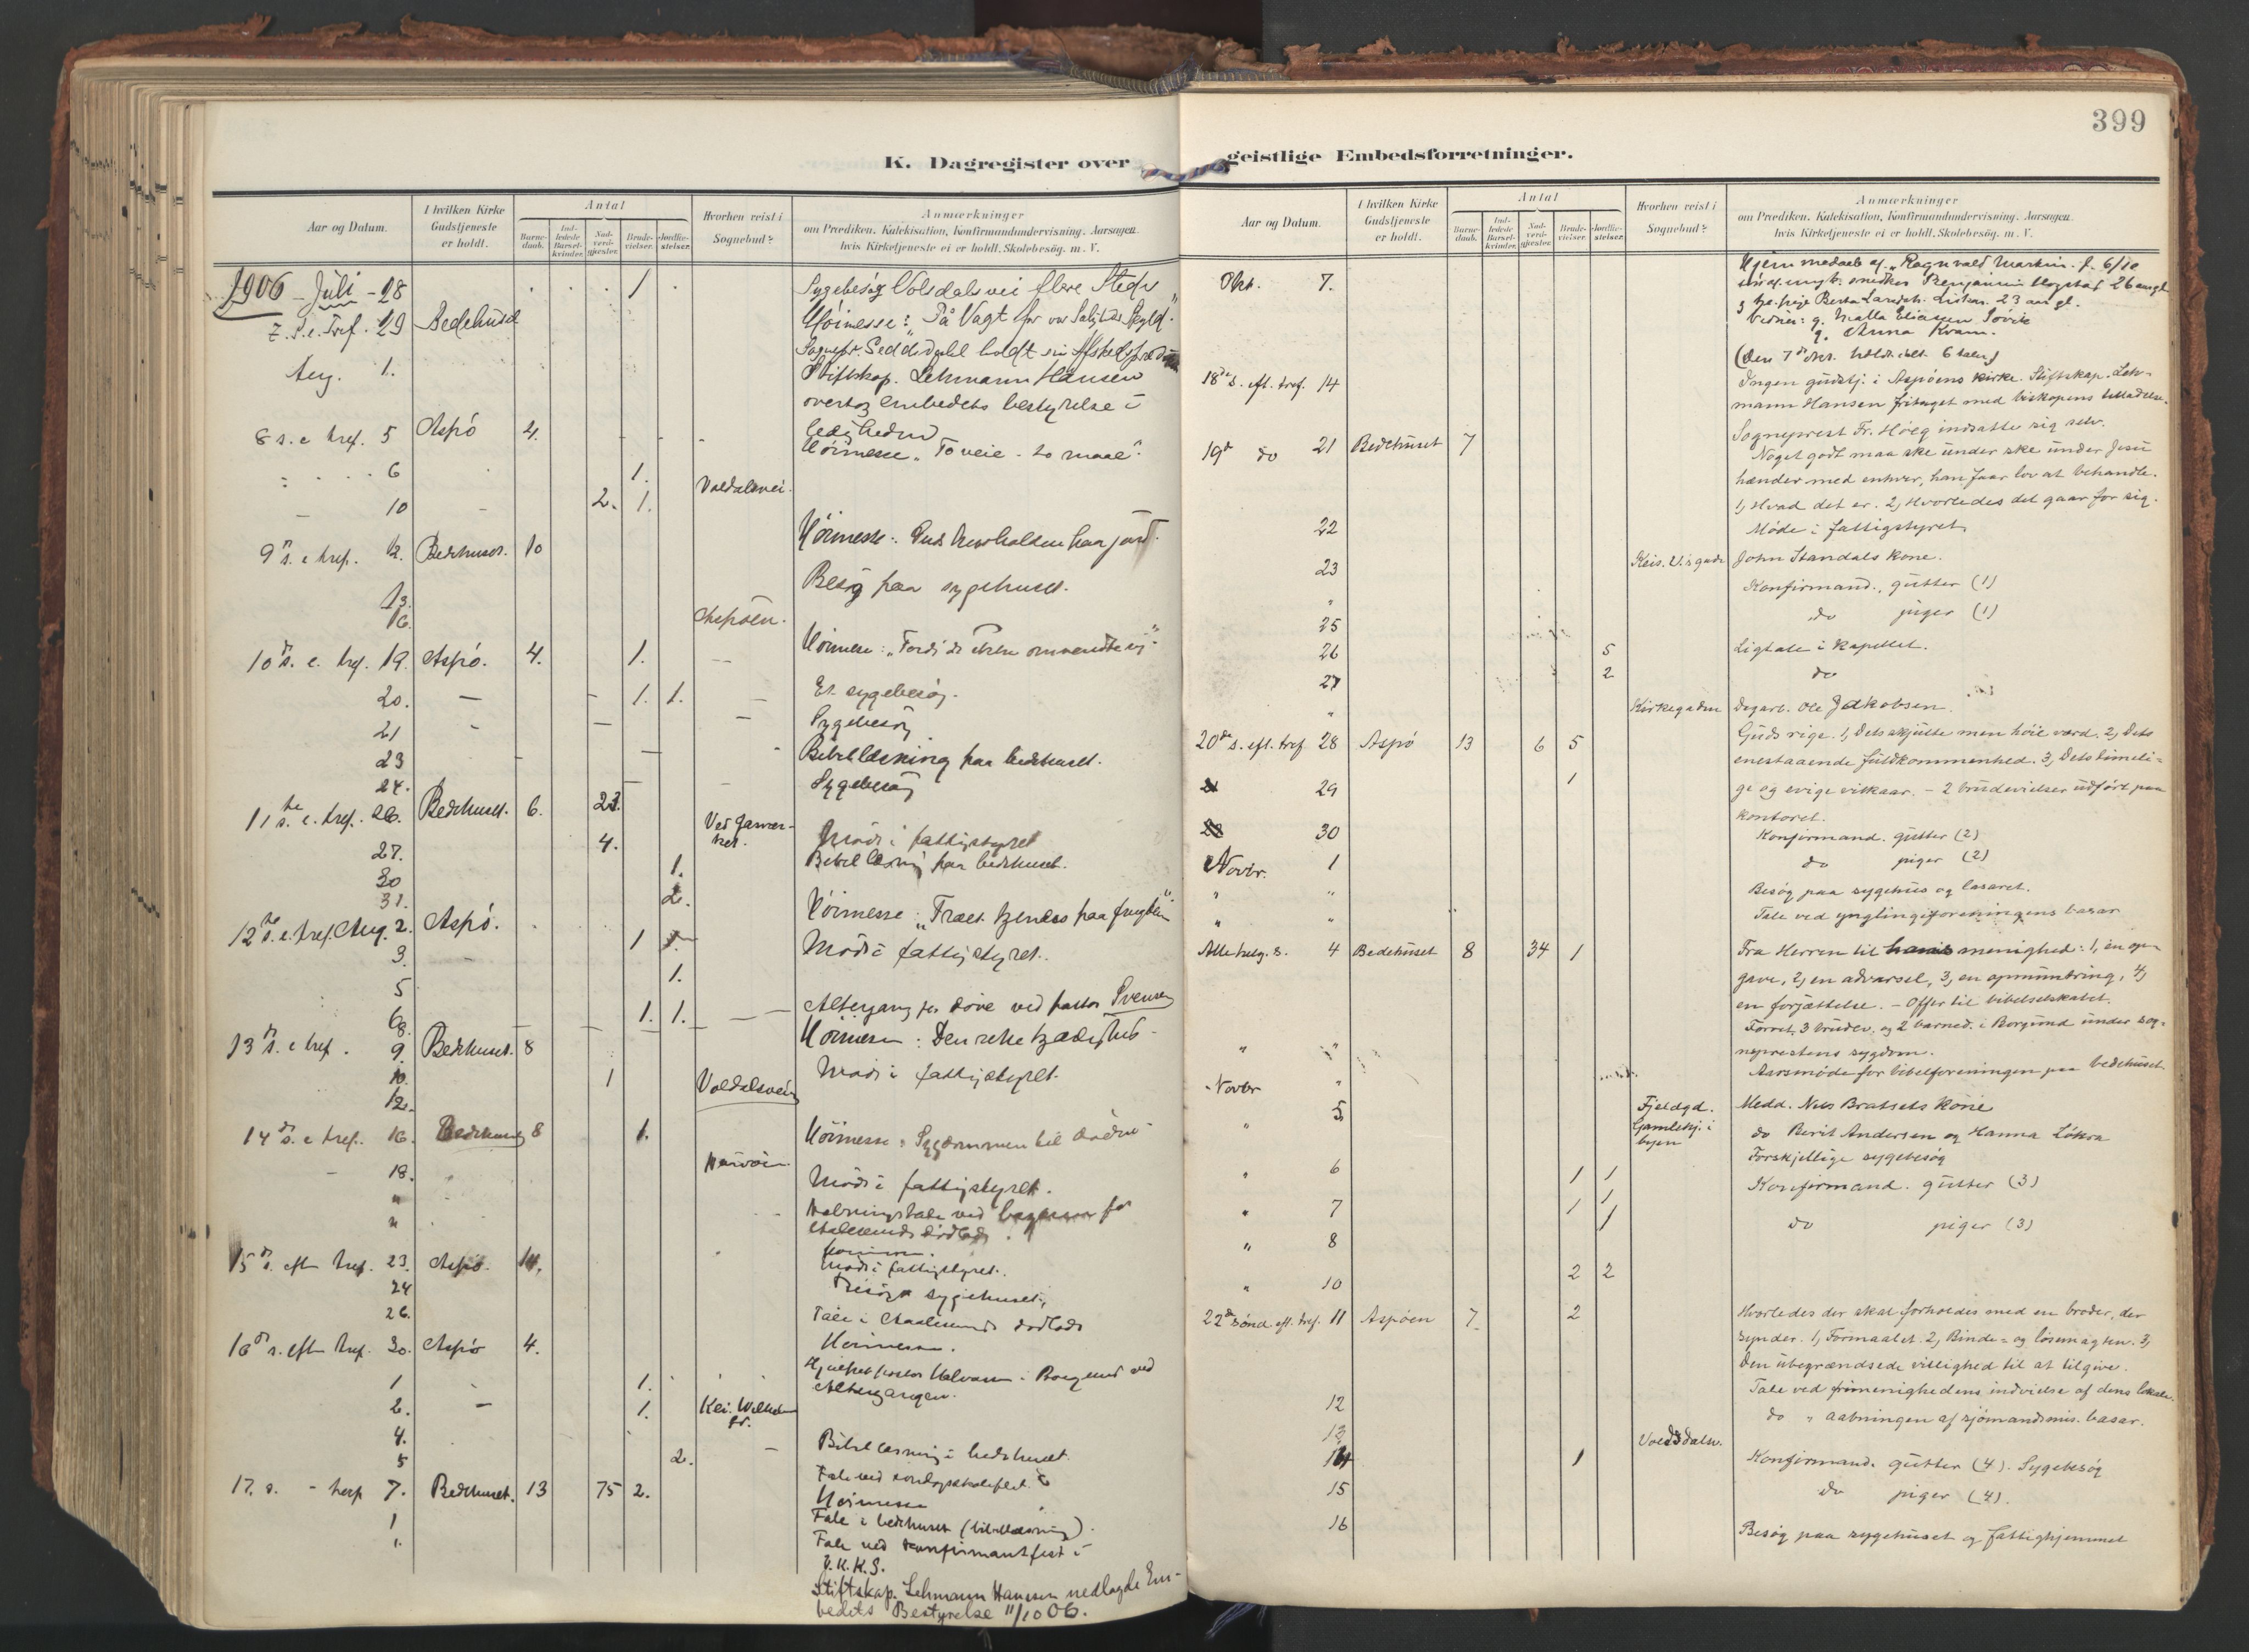 399
K. Dagregister over geistlige Embedsforretninger.
Aar og Datum.
I hvilken Kirke Gudstjeneste er holdt.
Antal
Barne-daab.
Ind-ledede Barsel-kvinder.
Nad-verd-gjester.
Brude-vielser.
Jordfæ-stelser.
Hvorhen reist i Sognebud?
Anmærkninger
om Prædiken. Katekisation, Konfirmandundervisning. Aarsagen.
hvis Kirketjeneste ei er holdt. Skolebesög. m. V.
1906 - Juli - 28 1 Sygebesög Volsdalsvei flere Steder
7. S. e. Tref. 29 Bedehuset Höimesse: "På Vagt for vor Salighets
Sognepr. Seddedahl holdt sin Afskedspræd
Aug. 1. Stiftskap. Lehmann Hansen
overtog embedets bestyrelse i
ledigheden
8 s. e tref. 5 Aspö 4. Höimesse "To veie - to maal".
6 1.
10 2. 1. Voldsdalsvei.
9 s. e tref. 12. Bedehuset. 10 Höimesse:
13. Besög paa sygehuset.
16. Aspöen.
10 s. e. tref. 19. Aspö. 4. 1. Höimesse: "Fordi de ikke omvendte sig"
20. 1. 1. Et sygebesög.
21 Sygebesög
23 Bibellæsning paa bedehuset.
24. Sygebesög
11te s. e. tref. 26. Bedehuset. 6. 23.
27. 4. Möde i fattigstyret
30 1. Bibellæsning paa bedehuset.
31. 2.
12te s. e. tref. Aug. 2. Aspö. Höimesse: "Træet kjendes paa frugten"
3. 1 Möde i fattigstyret.
5 1.
6 1. 1.
8. Altergang for döve ved pastor Svensen
13 s. e tref. 9. Bedehuset. 8 Höimesse: Den rette kjærlighed
10. 1 Möde i fattigstyret.
12. Voldsdalsvei
14 s. e tref. 16. Bedehuset 8 1. Höimesse:
18. Möde i fattigstyret.
" Aabningstale ved basaren for
"
15 s. eftr tref. 23. Aspö. 14.
Möde i fattigstyret.
24 Besög sygehuset.
26. Tale i Aalesunds
16 s. eftr tref. 30. Aspö 4. Höimesse.
1 1. Altergangen.
2. 1. Kei. Wilhelms gt.
4. Bibellæsning i bedehuset.
5 2. Tale ved söndagsskolefest
17. s. - tref 7. Bedehuset. 13 75 2. Höimesse
1 Tale i bedehuset (bibellæsning).
Tale ved konfirmantfest i
U.K.K.S.
Stiftskap. Lehmann Hansen nedlagde Em-
bedets Bestyrelse 11/10 06.
Aar og Datum.
I hvilken Kirke Gudstjeneste er holdt.
Antal
Barne-daab.
Ind-ledede Barsel-kvinder.
Nad-verd-gjester.
Brude-vielser.
Jordfæ-stelser.
Hvorhen reist i Sognebud?
Anmærkninger
om Prædiken. Katekisation, Konfirmandundervisning. Aarsagen.
hvis Kirketjeneste ei er holdt. Skolebesög. m. V.
Okt. 7. Hjemmedaab af "Ragnvald Martin" f. 6/10
snedker Benjamin 26 aar gl.
23 aar gl.
Vidner: g. Matta Eliassen Sövik
g. Anna Kvam.
(Den 7de okt.
18de s. eft. tref. 14 Ingen gudstj. i Aspöens kirke. Stiftskap. Leh-
mann Hansen fritaget med biskopens tilladelse.
Sogneprest Fr. Höeg indsatte sig selv.
19d do 21 Bedehuset 7 Noget godt maa ske under ske under Jesu
hænder med enhver, han faar lov at behandle.
1, Hvad det er. 2, Hvorledes det gaar for sig.
22 Möde i fattigstyret
23 Keis. V.s gade John Standals kone.
" Konfirmand., gutter (1)
25 do piger (1)
26 5 Ligtale i kapellet.
27 2 do
" Kirkegaden Dagarb. Ole Jakobsen.
20de s. eft. tref 28 Aspö 13 6 5 Guds rige. 1, Dets skjulte men höie værd. 2, Dets
enestaaende fuldkommenhed. 3, Dets timeli=
29 1 ge og evige vilkaar. - 2 brudevielser udfört paa
kontoret.
30 Konfirmand. gutter (2)
Novbr. 1 do piger (2)
" " Besög paa sygehus og lasaret.
" " Tale ved ynglingeforeningens basar
Allehelg. s. 4 Bedehuset 8 34 1 Fra Herren til menighed: 1, en op-
gave, 2, en advarsel, 3, en opmuntring, 4,
en forjættelse. - Offer til bibelselskabet.
Forret. 3 brudev. og 2 barned. i Borgund under sog-
neprestens sygdom.
" " Aarsmöde for bibelforeningen paa bedehuset
Novbr " Fjeldgd. Medd. Nils Bratsets kone
" 5 Gamlehj. i byen do Berit Andersen og Hanna Löksa
Forskjellige sygebesög
" 6 1 1 Konfirmand. gutter (3)
" 7 1 1 do piger (3)
" 8 1
" 10 2 2
22de sönd. eft. tref. 11 Aspöen 7 2 Hvorledes der skal forholdes med en broder, der
synder. 1, Formaalet. 2, Binde= og lösenögken. 3,
Den ubegrændsede villighed til at tilgive.
Tale ved frimenighedens indvielse af dens lokale.
12 do " aabningen af sjömandsmis. basar.
13 Voldsdalsv.
14 1 Konfirmand. gutter (4). Sygebesög
15 do piger (4).
16 Besög paa sygehuset og fattighjemmet